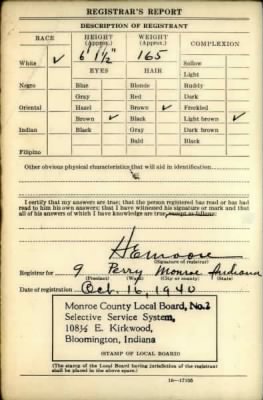 REGISTRAR'S REPORT
DESCRIPTION OF REGISTRANT
RACE HEIGHT (Approx.) WEIGHT (Approx.) COMPLEXION
White ✓ 6' 1½" 165 Sallow
EYES HAIR Light
Negro Blue Blonde Ruddy
Gray Red Dark
Oriental Hazel Brown ✓ Freckled
Brown ✓ Black Light brown ✓
Indian Black Gray Dark brown
Bald Black
Filipino
Other obvious physical characteristics that will aid in identification
I certify that my answers are true; that the person registered has read or has had
read to him his own answers; that I have witnessed his signature or mark and that
all of his answers of which I have knowledge are true, except as follows:
H E Moore
(Signature of registrar)
Registrar for 9 Perry Monroe Indiana
(Precinct) (Ward) (City or county) (State)
Date of registration Oct. 16, 1940
Monroe County Local Board, No. 2
Selective Service System,
108½ E. Kirkwood,
Bloomington, Indiana
(STAMP OF LOCAL BOARD)
(The stamp of the Local Board having jurisdiction of the registrant
shall be placed in the above space.)